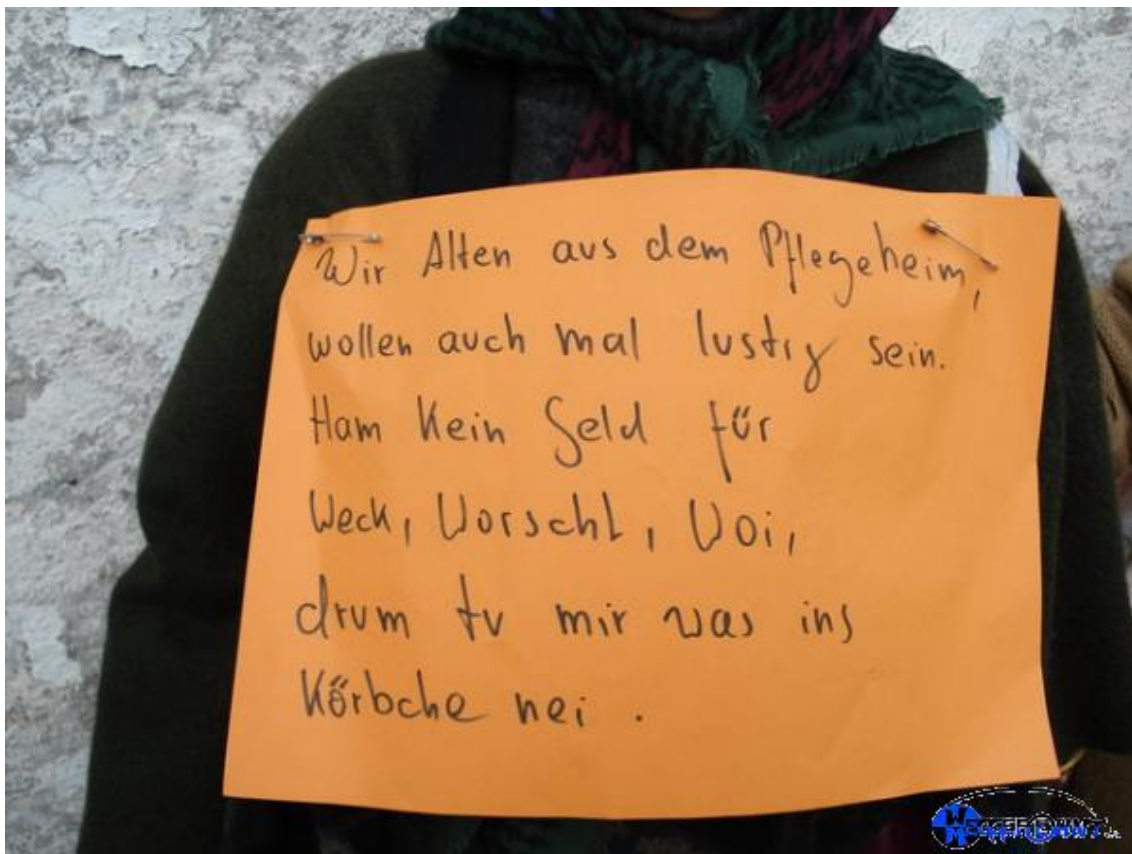 Wir Alten aus dem Pflegeheim,
wollen auch mal lustig sein.
Ham kein Geld für
Weck, Worscht, Woi,
drum tu mir was ins
Körbche nei.